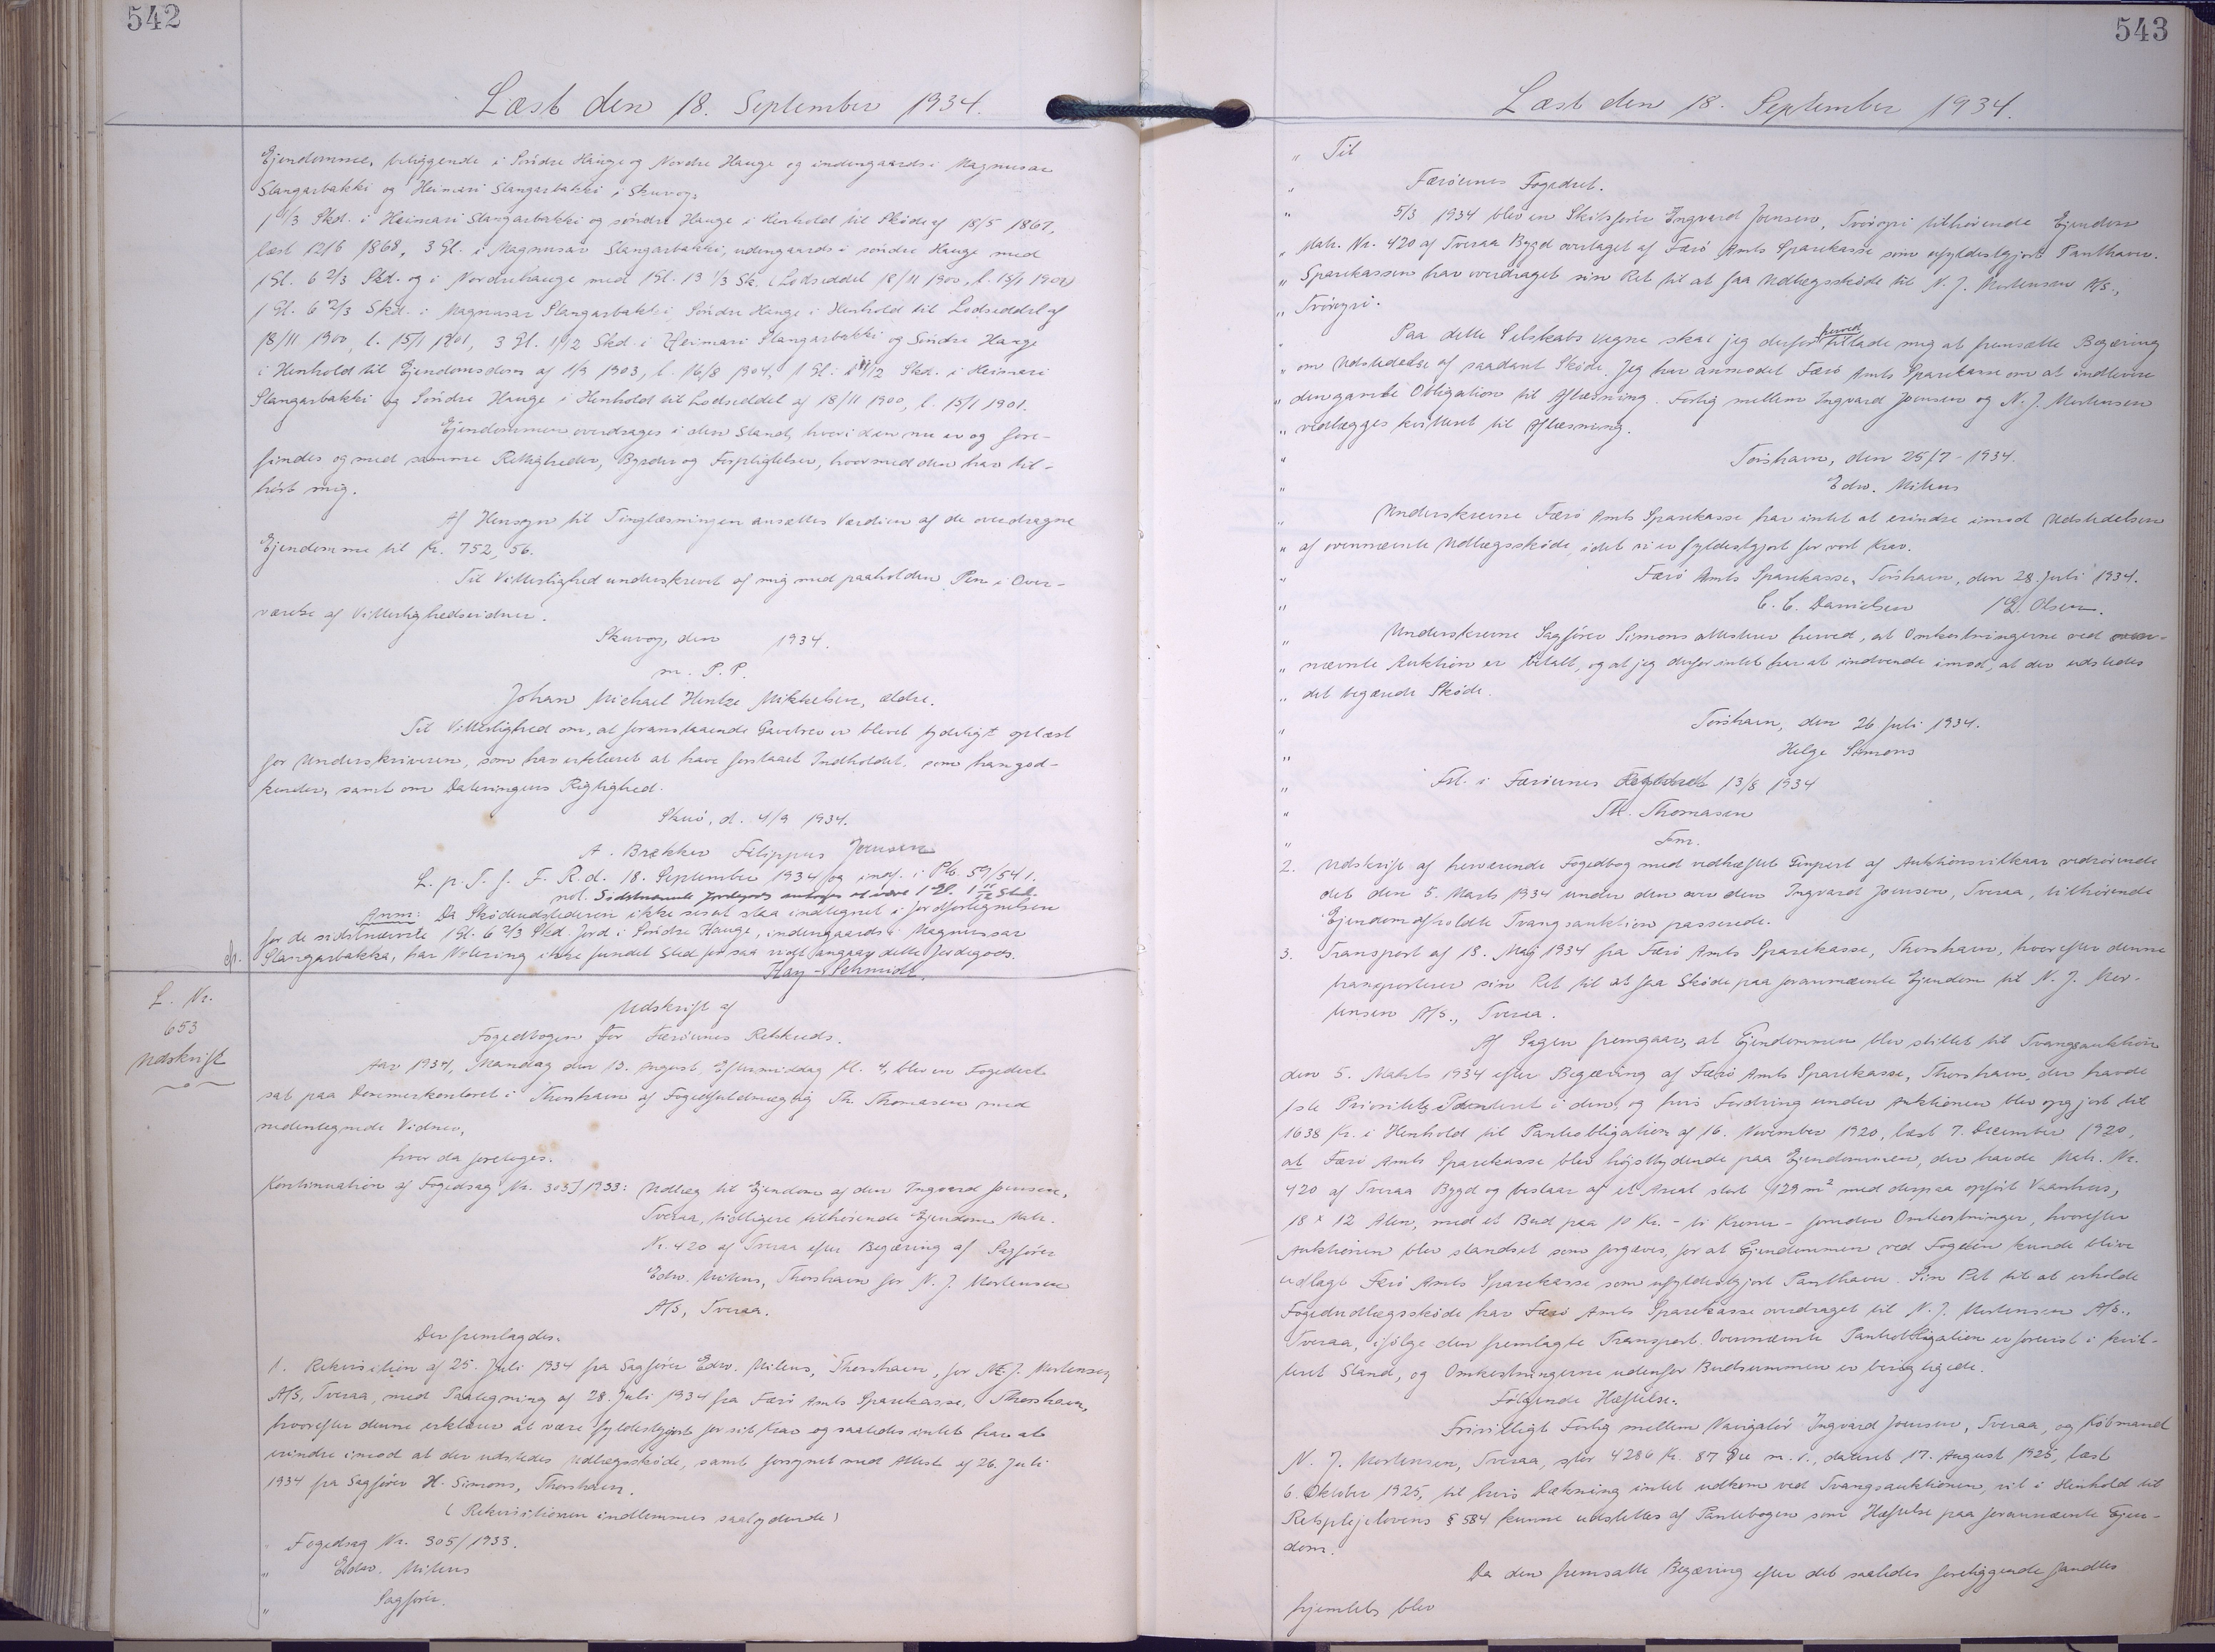 542
Læst den 18. September 1934.
Ejendomme, beliggende i Söndre Hauge og Nordre Hauge og indengaards i Magnusar
Slangarbakki og Heimari Slangarbakki i Skuvoy.
1 1/3 Skd. i Heimari Slangarbakki og söndre Hauge i Henhold til Sköde af 18/5 1867,
læst 12/6 1868, 3 Gl. i Magnusar Slangarbakki, udengaards i söndre Hauge med
1 Gl. 6 2/3 Skd. og i Nordrehauge med 1 Gl. 13 1/3 Sk. (Lodseddel 18/11 1900, l. 15/1 1901)
1 Gl. 6 2/3 Skd. i Magnusar Slangarbakki, Söndre Hauge i Henhold til Lodseddel af
18/11 1900, l. 15/1 1901, 3 Gl. 1/12 Skd. i Heimari Slangarbakki og Söndre Hauge
i Henhold til Ejendomsdom af 1/9 1903, l. 16/8 1904, 1 Gl. 11/12 Skd. i Heimari
Slangarbakki og Söndre Hauge i Henhold til Lodseddel af 18/11 1900, l. 15/1 1901.
Ejendommen overdrages i den Stand, hvori den nu er og fore-
findes og med samme Rettigheder, Byrder og Forpligtelser, hvormed den har til-
hört mig.
Af Hensyn til Tinglæsningen ansættes Værdien af de overdragne
Ejendomme til Kr. 752,56.
Til Vitterlighed underskrevet af mig med paaholden Pen i Over-
værelse af Vitterlighedsvidner.
Skuvoy, den 1934.
m. P. P.
Johan Michael Hentze Mikkelsen, ældre.
Til Vitterlighed om, at foranstaaende Gavebrev er blevet tydeligt oplæst
for Underskriveren, som har erklæret at have forstaaet Indholdet, som han god-
kender, samt om Dateringens Rigtighed.
Skuö, d. 4/9 1934.
A. Brekker Filippus Joensen
L. p. T. f. F. R. d. 18. September 1934 og indf. i Pb. 59/541.
Anm: Da Sködeudstederen ikke sesat staa indtegnet i Jordfortegnelsen
for de sidstnævnte 1 Gl. 6 2/3 Skd. Jord i Söndre Hauge, indengaards i Magnusar
Slangarbakka, har Notering ikke fundet Sted for saa vidt angaar dette Jordegods.
Hay-Schmidt.
L. Nr.
653
Udskrift
Udskrift af
Fogedbogen for Færöernes Retskreds.
Aar 1934, Mandag den 13. August, Eftermiddag Kl. 4, blev en Fogedret
sat paa Dommerkontoret i Thorshavn af Fogedfuldmægtig Th. Thomasen med
nedentegnede Vidner,
hvor da foretoges.
Kontinuation af Fogedsag Nr. 305/1933: Udlæg til Ejendom af den Ingvard Joensen,
Tveraa, tidligere tilhörende Ejendom Matr.
Nr. 420 af Tveraa efter Begæring af Sagförer
Edw. Mitens, Thorshavn for N. J. Mortensen
A/S, Tveraa.
Der fremlagdes.
1. Rekvisition af 25. Juli 1934 fra Sagförer Edw. Mitens, Thorshavn, for N. J. Mortensen
A/S, Tveraa, med Paategning af 28. Juli 1934 fra Færö Amts Sparekasse, Thorshavn,
hvorefter denne erklærer at være fyldestgjort for sit Krav og saaledes intet har at
erindre imod at der udstedes Udlægssköde, samt forsynet med Attest af 26. Juli
1934 fra Sagförer H. Simons, Thorshavn.
(Rekvisitionen indlemmes saalydende)
" Fogedsag Nr. 305/1933.
" Edw. Mitens
" Sagförer.
543
Læst den 18. September 1934.
" Til
" Færöernes Fogedret.
" 5/3 1934 blev en Skibsförer Engvard Joensen, Tvöroyri tilhörende Ejendom
" Matr. Nr. 420 af Tveraa Bygd overtaget af Færö Amts Sparekasse som ufyldestgjort Panthaver.
" Sparekassen har overdraget sin Ret til at faa Udlægssköde til N. J. Mortensen A/S.,
" Tvöroyri.
" Paa dette Selskabs Vegne skal jeg derfor herved tillade mig at fremsætte Begæring
" om Udstedelse af saadant Sköde. Jeg har anmodet Færö Amts Sparekasse om at indlevere
" den gamle Obligation til Aflæsning. Forlig mellem Ingvard Joensen og N. J. Mortensen
" vedlægges kvitteret til Aflæsning.
" Torshavn, den 25/7-1934.
" Edw. Mitens
" Underskrevne Færö Amts Sparekasse har intet at erindre imod Udstedelsen
" af ovennævnte Udlægssköde, idet vi er fyldestgjort for vort Krav.
" Færö Amts Sparekasse, Torshavn, den 28. Juli 1934.
" C. C. Danielsen / Olsen.
" Underskrevne Sagförer Simons attesterer herved, at Omkostningerne ved oven-
" nævnte Auktion er betalt, og at jeg derfor intet har at indvende imod, at der udstedes
" det begærede Sköde.
" Torshavn, den 26 Juli 1934.
" Helge Simons
" Frl. i Færöernes Fogedret 13/8 1934
" Th. Thomasen
" Fm.
2. Udskrift af herværende Fogedbog med vedhæftet Genpart af Auktionsvilkaar vedrörende
det den 5. Marts 1934 under den over den Ingvard Joensen, Tveraa, tilhörende
Ejendom afholdte Tvangsauktion passerede.
3. Transport af 18. Maj 1934 fra Færö Amts Sparekasse, Thorshavn, hvorefter denne
transporterer sin Ret til at faa Sköde paa forannævnte Ejendom til N. J. Mor-
tensen A/S., Tveraa.
Af Sagen fremgaar, at Ejendommen blev stillet til Tvangsauktion
den 5. Marts 1934 efter Begæring af Færö Amts Sparekasse, Thorshavn, der havde
1ste Prioritets Panteret i den, og hvis Fordring under Auktionen blev opgjort til
1638 Kr. i Henhold til Panteobligation af 16. November 1920, læst 7. December 1920,
at Færö Amts Sparekasse blev höjstbydende paa Ejendommen, der havde Matr. Nr.
420 af Tveraa Bygd og bestaar af et Areal stort 129 m² med derpaa opfört Vaanhus,
18 x 12 Alen, med et Bud paa 10 Kr. - ti Kroner - foruden Omkostninger, hvorefter
Auktionen blev standset som forgæves, for at Ejendommen ved Fogeden kunde blive
udlagt Færö Amts Sparekasse som ufyldestgjort Panthaver. Sin Ret til at erholde
Fogedudlægssköde har Færö Amts Sparekasse overdraget til N. J. Mortensen A/S.,
Tveraa, ifölge den fremlagte Transport. Ovennævnte Panteobligation er forevist i kvit-
teret Stand, og Omkostningerne udenfor Budsummen er berigtigede.
Fölgende Hæftelse.
Frivilligt Forlig mellem Navigatör Ingvard Joensen, Tveraa, og Köbmand
N. J. Mortensen, Tveraa, stor 4286 Kr. 87 Öre m. v., dateret 17. August 1925, læst
6. Oktober 1925, til hvis Dækning intet udkom ved Tvangsauktionen, vil i Henhold til
Retsplejelovens § 584 kunne udslettes af Pantebogen som Hæftelse paa forannævnte Ejen-
dom.
Da den fremsatte Begæring efter det saaledes foreliggende fandtes
hjemlet, blev